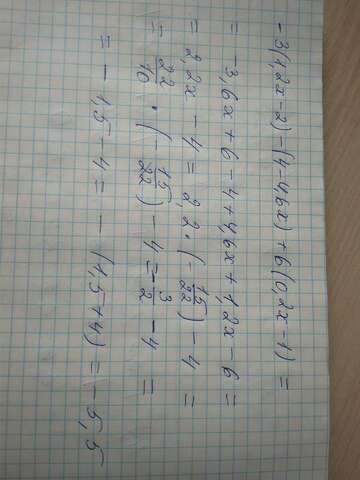 -3(1,2x-2)-(4-4,6x)+6(0,2x-1)=
= -3,6x+6-4+4,6x+1,2x-6=
= 2,2x-4=2,2·(-15/22)-4=
= 22/10 · (-15/22) -4 = -3/2 -4 =
= -1,5-4= -(1,5+4)= -5,5